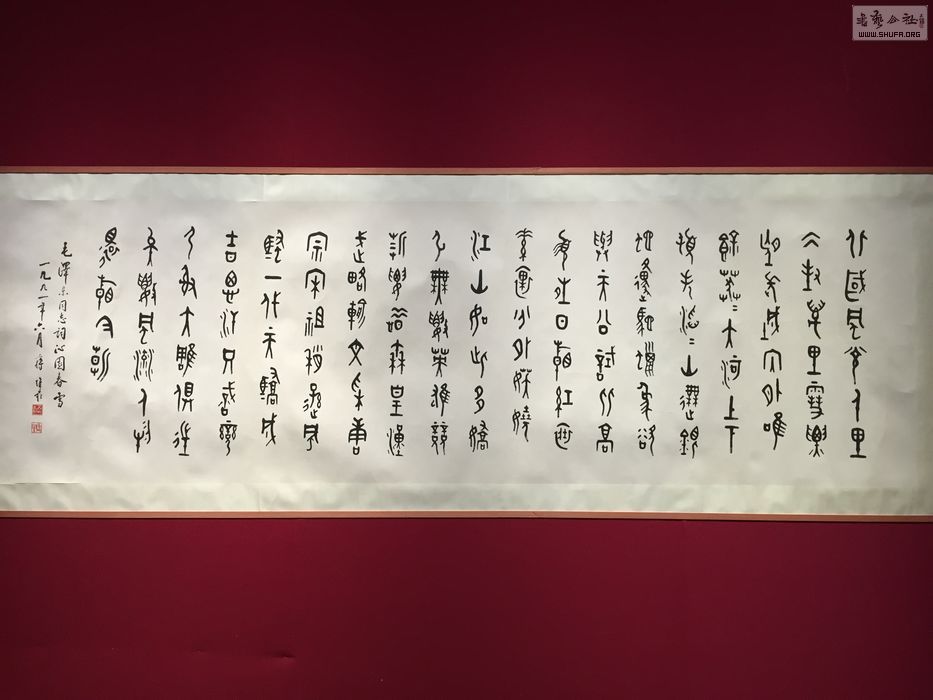 北國風光千里
冰封萬里雪飄
望長城內外唯
餘莽〻大河上下
頓失滔〻山舞銀
蛇原馳蠟象欲
與天公試比高
須晴日看紅裝
素裹分外妖嬈
江山如此多嬌
引無數英雄競
折腰惜秦皇漢
武略輸文采唐
宗宋祖稍遜風
騷一代天驕成
吉思汗只識彎
弓射大雕俱往
矣數風流人物
還看今朝
毛澤東同志詞沁園春雪
一九九一年六月
WWW.SHUFA.ORG